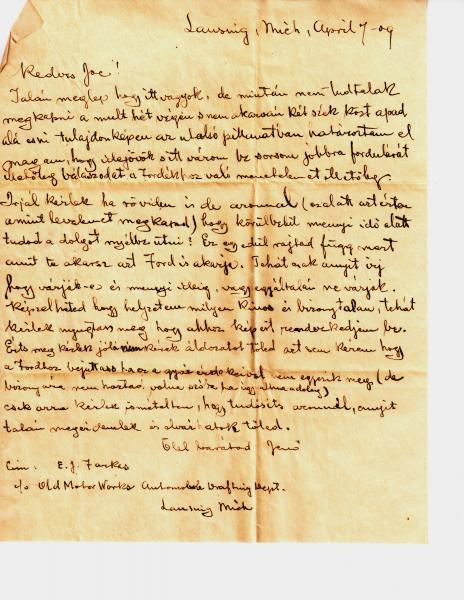 Lansing, Mich, April 7-09
Kedves Joe!
Talán meglep hogy itt vagyok, de miután nem tudtalak
megkapni a mult hét végén s nem akarván két szék közt a pad
alá esni tulajdonképen az utolsó pillanatban határoztam el
magam, hogy idejövök s itt várom be sorsom jobbra fordulását
válaszodat a Fordékhoz való menetelem et illetőleg
Irjál kérlek ha röviden is de azonnal (azalatt azt értve
amint levelemet megkapod) hogy körülbelül mennyi idő alatt
tudod a dolgot nyélbe ütni! Ez egyedül rajtad függ mert
amit te akarsz azt Ford is akarja. Tehát csak annyit irj
hogy várjak-e és mennyi ideig, vagy egyáltalán ne várjak.
Képzelheted hogy helyzetem milyen kinos és bizonytalan, tehát
kérlek nyugtass meg hogy ahhoz képest rendezkedjem be.
Érts meg kérlek jól: nem kérek áldozatot tőled azt sem kérem hogy
a Fordhoz bejuttass ha ez a gyár érdekeivel nem egyezik meg (de
bizonyára nem hoztad volna szóba ha úgy volna a dolog)
csak arra kérlek ismételten, hogy tudósits azonnal, annyit
talán megérdemlek és elvárhatok tőled.
Ölel barátod Jenő
Cim: E. J. Farkas
c/o Old Motor Works Automobile Drafting Dept.
Lansing Mich